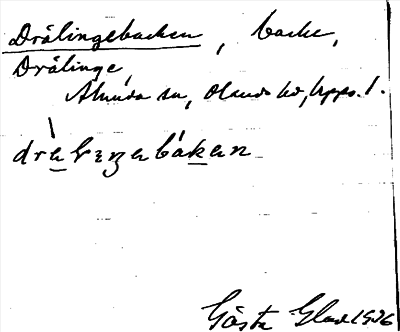 Drälingebacken, backe,
Drälinge,
Almunda sn, Olands hd, Upps. l.
Gösta Glad 1936